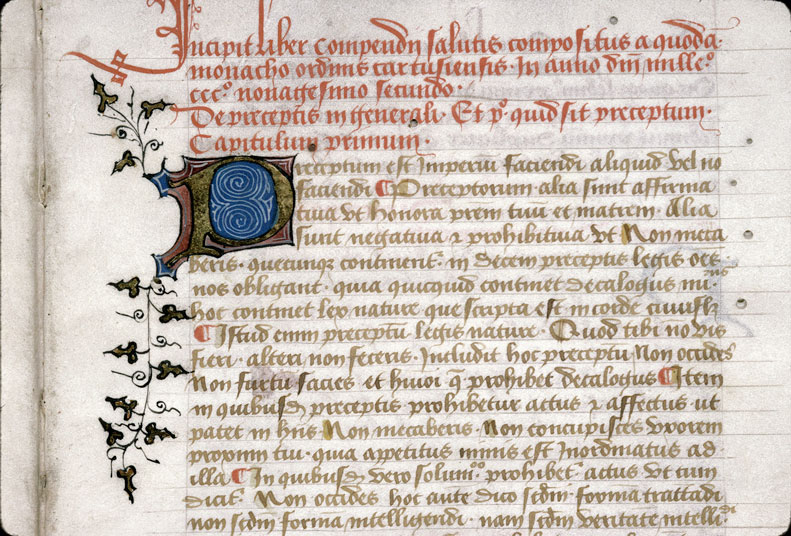 Incipit liber compendij salutis compositus a quodā
monacho ordinis cartusiensis. In anno dni mille°
ccc° nonagesimo secundo.
De preceptis in generali. Et p° quid sit preceptum.
Capitulum primum.
Preceptum est imperiū faciendi aliquid vel nō
faciendi ¶ Preceptorum alia sunt affirma
tiua vt honora prēm tuū et matrem. Alia
sunt negatiua ⁊ prohibitiua vt Non meca
beris. quecunqꝫ continent᷑ in decem preceptis legis oēs
nos obligant. quia quicquid continet decalogus
hoc continet lex nature que scripta est in corde
¶ Istud enim preceptū legis nature. Quod tibi nō vis
fieri. alteri non feceris. Includit hoc preceptū Non occides
Non furtū facies et hmoi q̄ prohibet decalogus ¶ Item
in quibusdā preceptis prohibetur actus ⁊ affectus. ut
patet in hiis. Non mecaberis. Non concupisces vxorem
proximi tui. quia appetitus nimis est inordinatus ad
illa ¶ In quibusdā vero solum prohibet᷑ actus vt cum
dicit᷑. Non occides hoc aute dico scdm. formā tractādi
non scdm formā intelligendi. nam scdm veritatē intelli